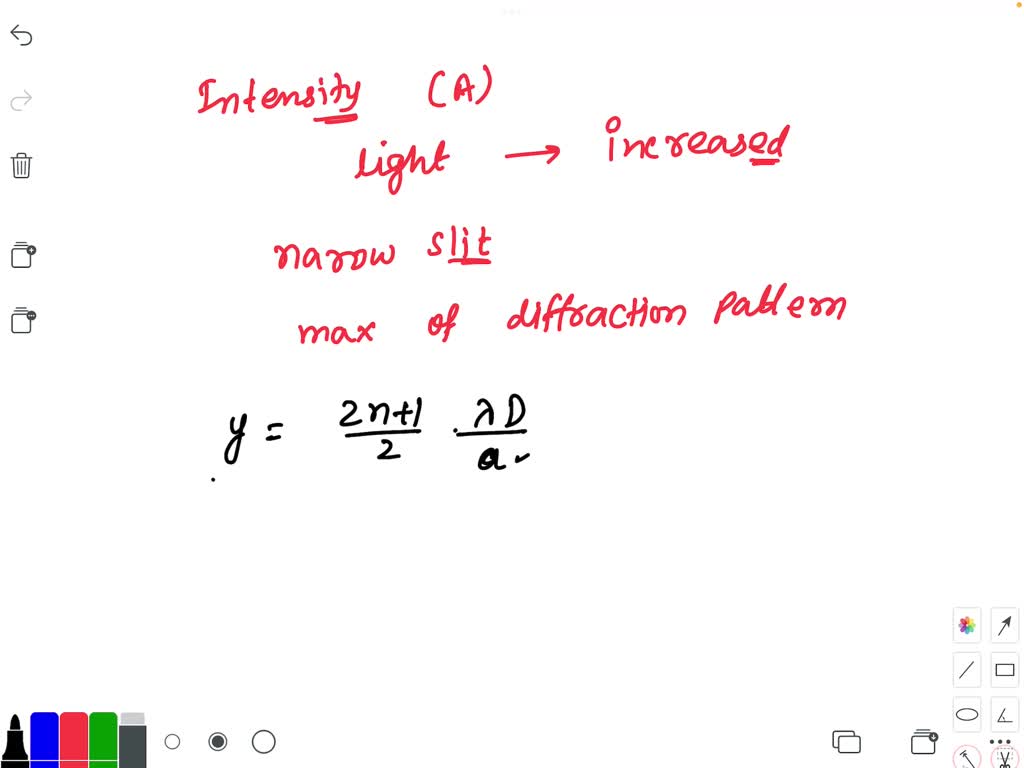 Intensity (A)
light → increased
narrow slit
max of diffraction pattern
y = 2n+1/2 . λD/a